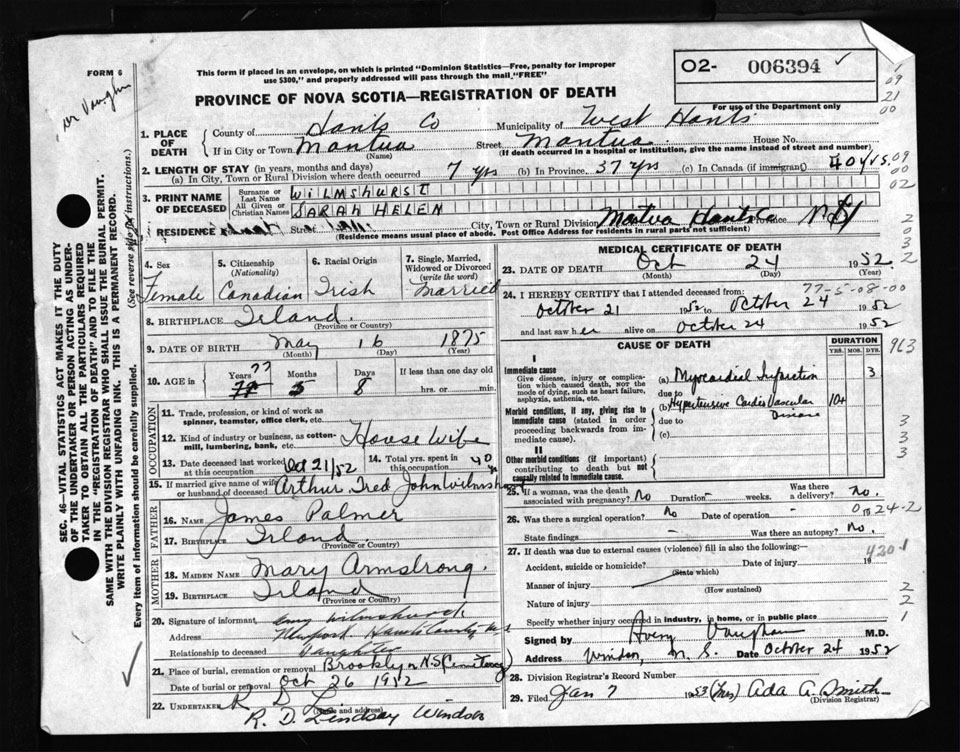 FORM 6
Dr Vaughn
This form if placed in an envelope, on which is printed "Dominion Statistics—Free, penalty for improper
use $300," and properly addressed will pass through the mail "FREE"
PROVINCE OF NOVA SCOTIA—REGISTRATION OF DEATH
02- 006394
For use of the Department only
09
21
00
1. PLACE OF DEATH
County of Hants Co Municipality of West Hants
If in City or Town Mantua Street Mantua House No.
(Name) (If death occurred in a hospital or institution, give the name instead of street and number)
2. LENGTH OF STAY (in years, months and days)
(a) In City, Town or Rural Division where death occurred 7 yrs (b) In Province 37 yrs (c) In Canada (if immigrant) 40 yrs.
09
00
02
3. PRINT NAME OF DECEASED
Surname or Last Name WILMSHURST
All Given or Christian Names SARAH HELEN
RESIDENCE Street City, Town or Rural Division Mantua Hants Co Province N S
(Residence means usual place of abode. Post Office Address for residents in rural parts not sufficient)
SEC. 46—VITAL STATISTICS ACT MAKES IT THE DUTY
OF THE UNDERTAKER OR PERSON ACTING AS UNDER-
TAKER TO OBTAIN ALL THE PARTICULARS REQUIRED
IN THE "REGISTRATION OF DEATH" AND TO FILE THE
SAME WITH THE DIVISION REGISTRAR WHO SHALL ISSUE THE BURIAL PERMIT.
WRITE PLAINLY WITH UNFADING INK. THIS IS A PERMANENT RECORD.
Every item of information should be carefully supplied. (See reverse side for instructions.)
4. Sex Female
5. Citizenship (Nationality) Canadian
6. Racial Origin Irish
7. Single, Married, Widowed or Divorced (write the word) Married
8. BIRTHPLACE Irland.
(Province or Country)
9. DATE OF BIRTH May 16 1875
(Month) (Day) (Year)
10. AGE in Years 77 Months 5 Days 8 If less than one day old
hrs. or min.
OCCUPATION
11. Trade, profession, or kind of work as
spinner, teamster, office clerk, etc.
12. Kind of industry or business, as cotton-
mill, lumbering, bank, etc. House Wife
13. Date deceased last worked at this occupation Oct 21/52 14. Total yrs. spent in this occupation 40
15. If married give name of wife
or husband of deceased Arthur Fred John Wilmshurst
FATHER
16. NAME James Palmer
17. BIRTHPLACE Irland.
(Province or Country)
MOTHER
18. MAIDEN NAME Mary Armstrong.
19. BIRTHPLACE Irland
(Province or Country)
20. Signature of informant
Address Newport Hants County N.S
Relationship to deceased Daughter
21. Place of burial, cremation or removal Brooklyn N.S (Cemetery)
Date of burial or removal Oct 26 1952
22. UNDERTAKER R D L
(Name and address)
R. D. Lindsay Windsor
MEDICAL CERTIFICATE OF DEATH
23. DATE OF DEATH Oct 24 1952.
(Month) (Day) (Year)
77-5-08-00
24. I HEREBY CERTIFY that I attended deceased from:
October 21 1952 to October 24 1952
and last saw her alive on October 24 1952
CAUSE OF DEATH
DURATION
YRS. MOS. DYS.
I
Immediate cause
Give disease, injury or complica-
tion which caused death, not the
mode of dying, such as heart failure,
asphyxia, asthenia, etc.
(a) Myocardial Infarction 3
due to
Morbid conditions, if any, giving rise to
immediate cause (stated in order
proceeding backwards from im-
mediate cause).
(b) Hypertensive Cardio Vascular Disease 10+
due to
(c)
II
Other morbid conditions (if important)
contributing to death but not
causally related to immediate cause.
25. If a woman, was the death
associated with pregnancy? No Duration - weeks. Was there a delivery? No.
26. Was there a surgical operation? No Date of operation -
State findings - Was there an autopsy? No.
27. If death was due to external causes (violence) fill in also the following:—
Accident, suicide or homicide? Date of injury 19
(State which)
420.1
Manner of injury
(How sustained)
Nature of injury
Specify whether injury occurred in industry, in home, or in public place
Signed by Avery Vaughan M.D.
Address Windsor, N. S. Date October 24 1952
28. Division Registrar's Record Number
29. Filed Jan 7 1953 (Mrs) Ada A. Smith
(Division Registrar)